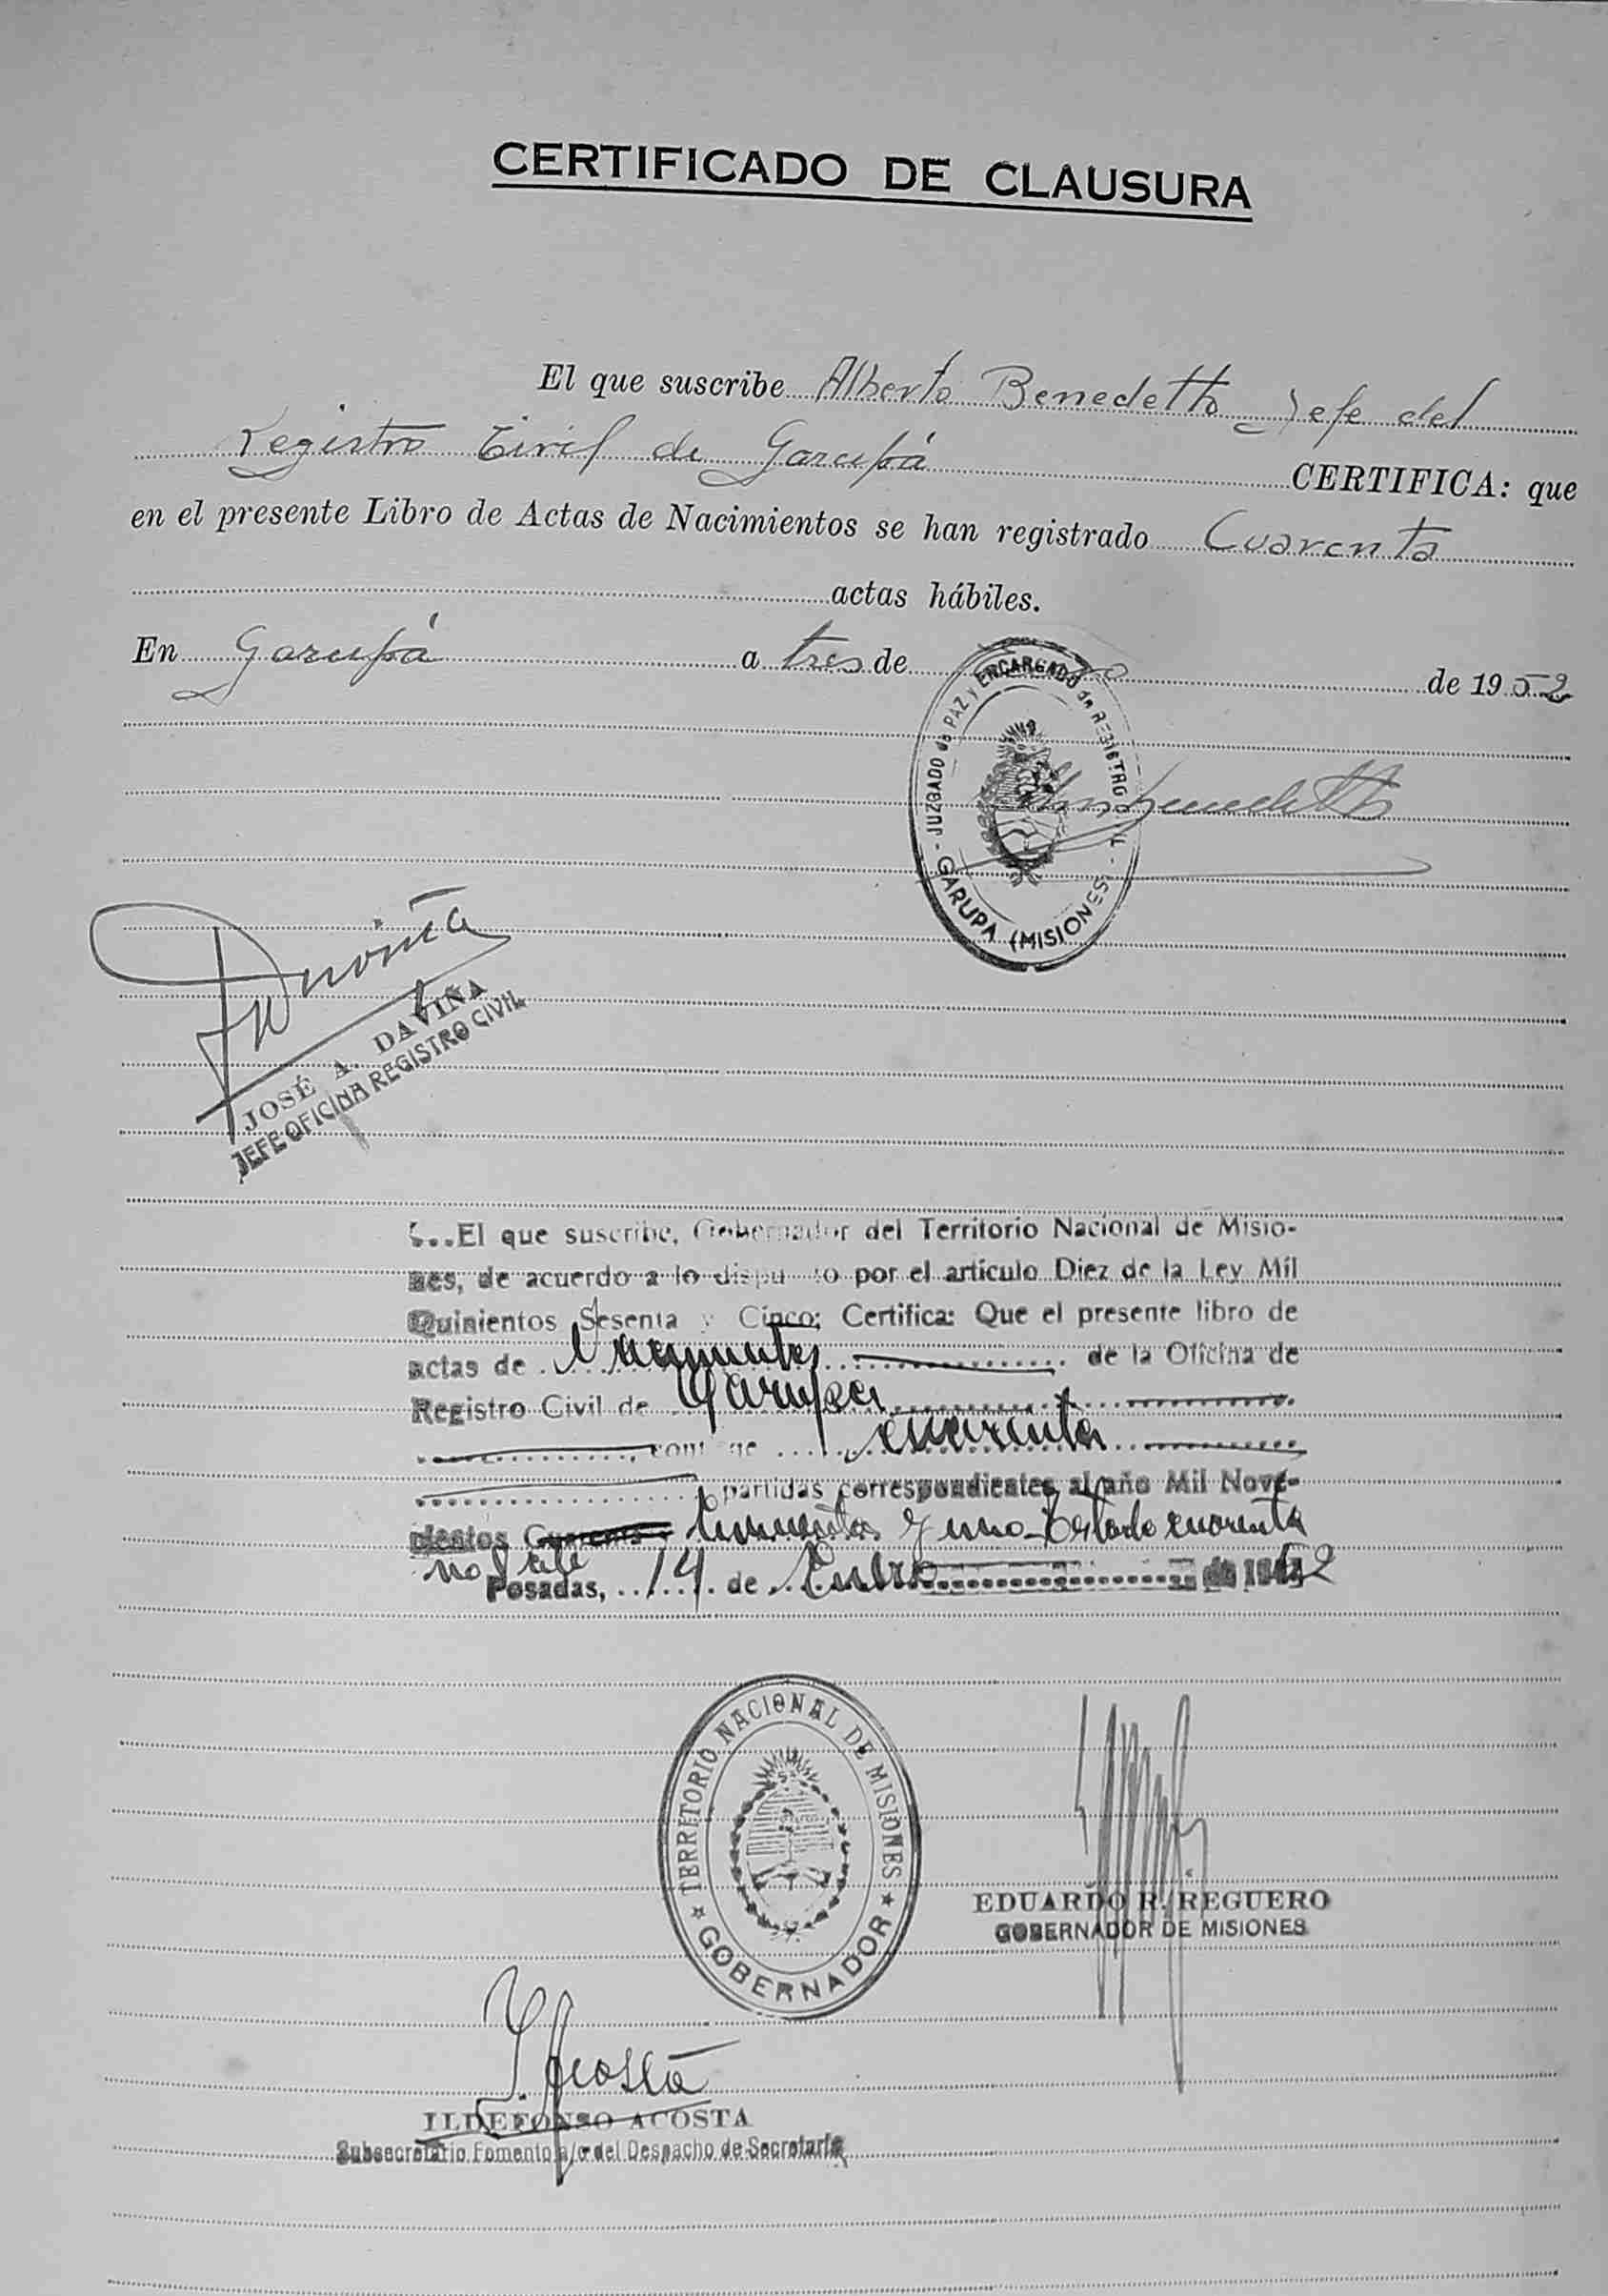 CERTIFICADO DE CLAUSURA
El que suscribe Alberto Benedetto Jefe del
Registro Civil de Garupá CERTIFICA: que
en el presente Libro de Actas de Nacimientos se han registrado Cuarenta
actas hábiles.
En Garupá a tres de de 1952
JUZGADO de PAZ y ENCARGADO de REGISTRO
GARUPA (MISIONES)
JOSÉ A. DAVIÑA
JEFE OFICINA REGISTRO CIVIL
El que suscribe, Gobernador del Territorio Nacional de Misio-
nes, de acuerdo a lo dispuesto por el artículo Diez de la Ley Mil
Quinientos Sesenta y Cinco; Certifica: Que el presente libro de
actas de Nacimientos de la Oficina de
Registro Civil de Garupá
contiene cuarenta
partidas correspondientes al año Mil Nove-
cientos Cuarenta y cincuenta y uno-Testado cuarenta
no vale
Posadas, 14 de Enero de 1952
TERRITORIO NACIONAL DE MISIONES
GOBERNADOR
EDUARDO R. REGUERO
GOBERNADOR DE MISIONES
I. Acosta
ILDEFONSO ACOSTA
Subsecretario Fomento a/c del Despacho de Secretaría